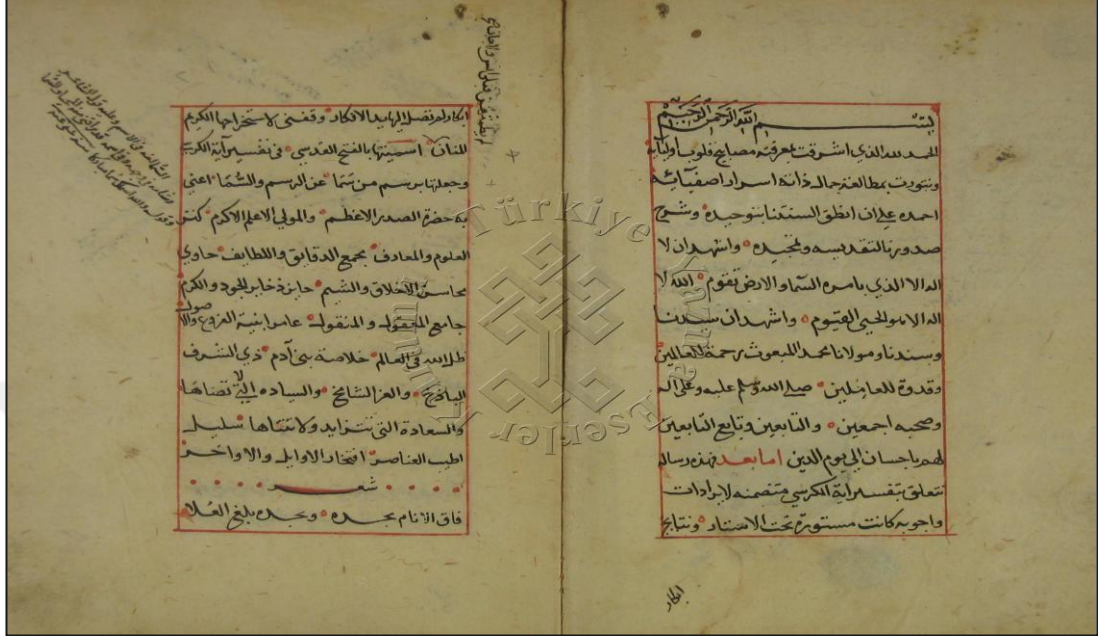 بسم الله الرحمن الرحيم
الحمد لله الذي اشرقت بمعرفته مصابيح قلوب اوليائه
وتنورت بمطالعة جمال ذاته اسرار اصفيائه
احمده على ان انطق السنتنا بتوحيده وشرح
صدورنا لتقديسه وتمجيده واشهد ان لا
اله الا الذي بامره السما والارض تقوم الله لا
اله الا هو الحي القيوم واشهد ان سيدنا
وسندنا ومولانا محمد المبعوث رحمة للعالمين
وقدوة للعاملين صلى الله وسلم عليه وعلى اله
وصحبه اجمعين والتابعين وتابع التابعين
لهم باحسان الى يوم الدين اما بعد فهذه رساله
تتعلق بتفسير اية الكرسي متضمنه لايرادات
واجوبه كانت مستورة تحت الاستار ونتايج
ابكار
ابكار لم تصل اليها يد الافكار وقفنى لاستخراجها الكريم
المنان اسميتها بالفتح القدسي في تفسير اية الكرسي
وجعلتها برسم من سما عن الرسم والسما اعني
به حضرة الصدر الاعظم والمولي الاعلم الاكرم كنز
العلوم والمعارف مجمع الدقايق واللطايف حاوي
محاسن الاخلاق والشيم حايز ذخاير الجود والكرم
جامع المعقول والمنقول عامر ابنية الفروع والاصول
ظل الله في العالم خلاصة بني آدم ذي الشرف
الباذخ والعز الشامخ والسياده التي لا تضاها
والسعادة التي تتزايد ولا تتناها سليل
اطيب العناصر افتخار الاوايل والاواخر
شعر
فاق الانام بجده وبجده بلغ العلا
Türkiye
Yazma Eserler
Kurumu